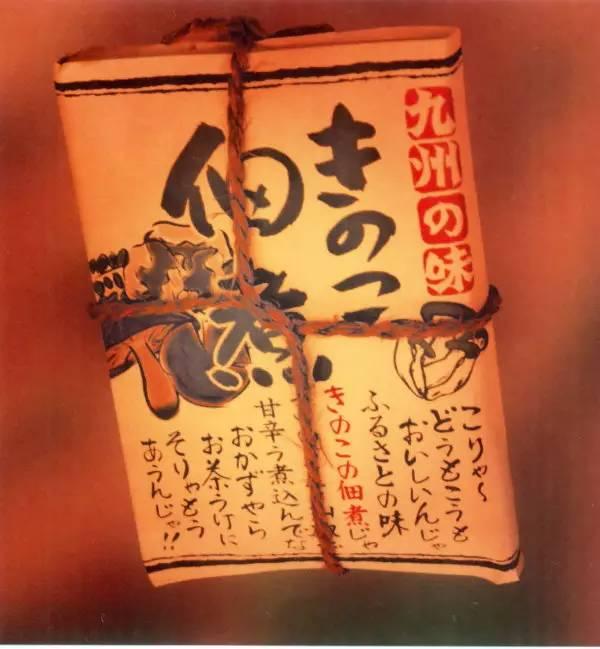 九州の味
きのこ
佃煮
こりゃ〜
どうもこうも
おいしいんじゃ
ふるさとの味
きのこの佃煮じゃ
甘辛う煮込んでな
おかずやら
お茶うけに
そりゃもう
あうんじゃ!!